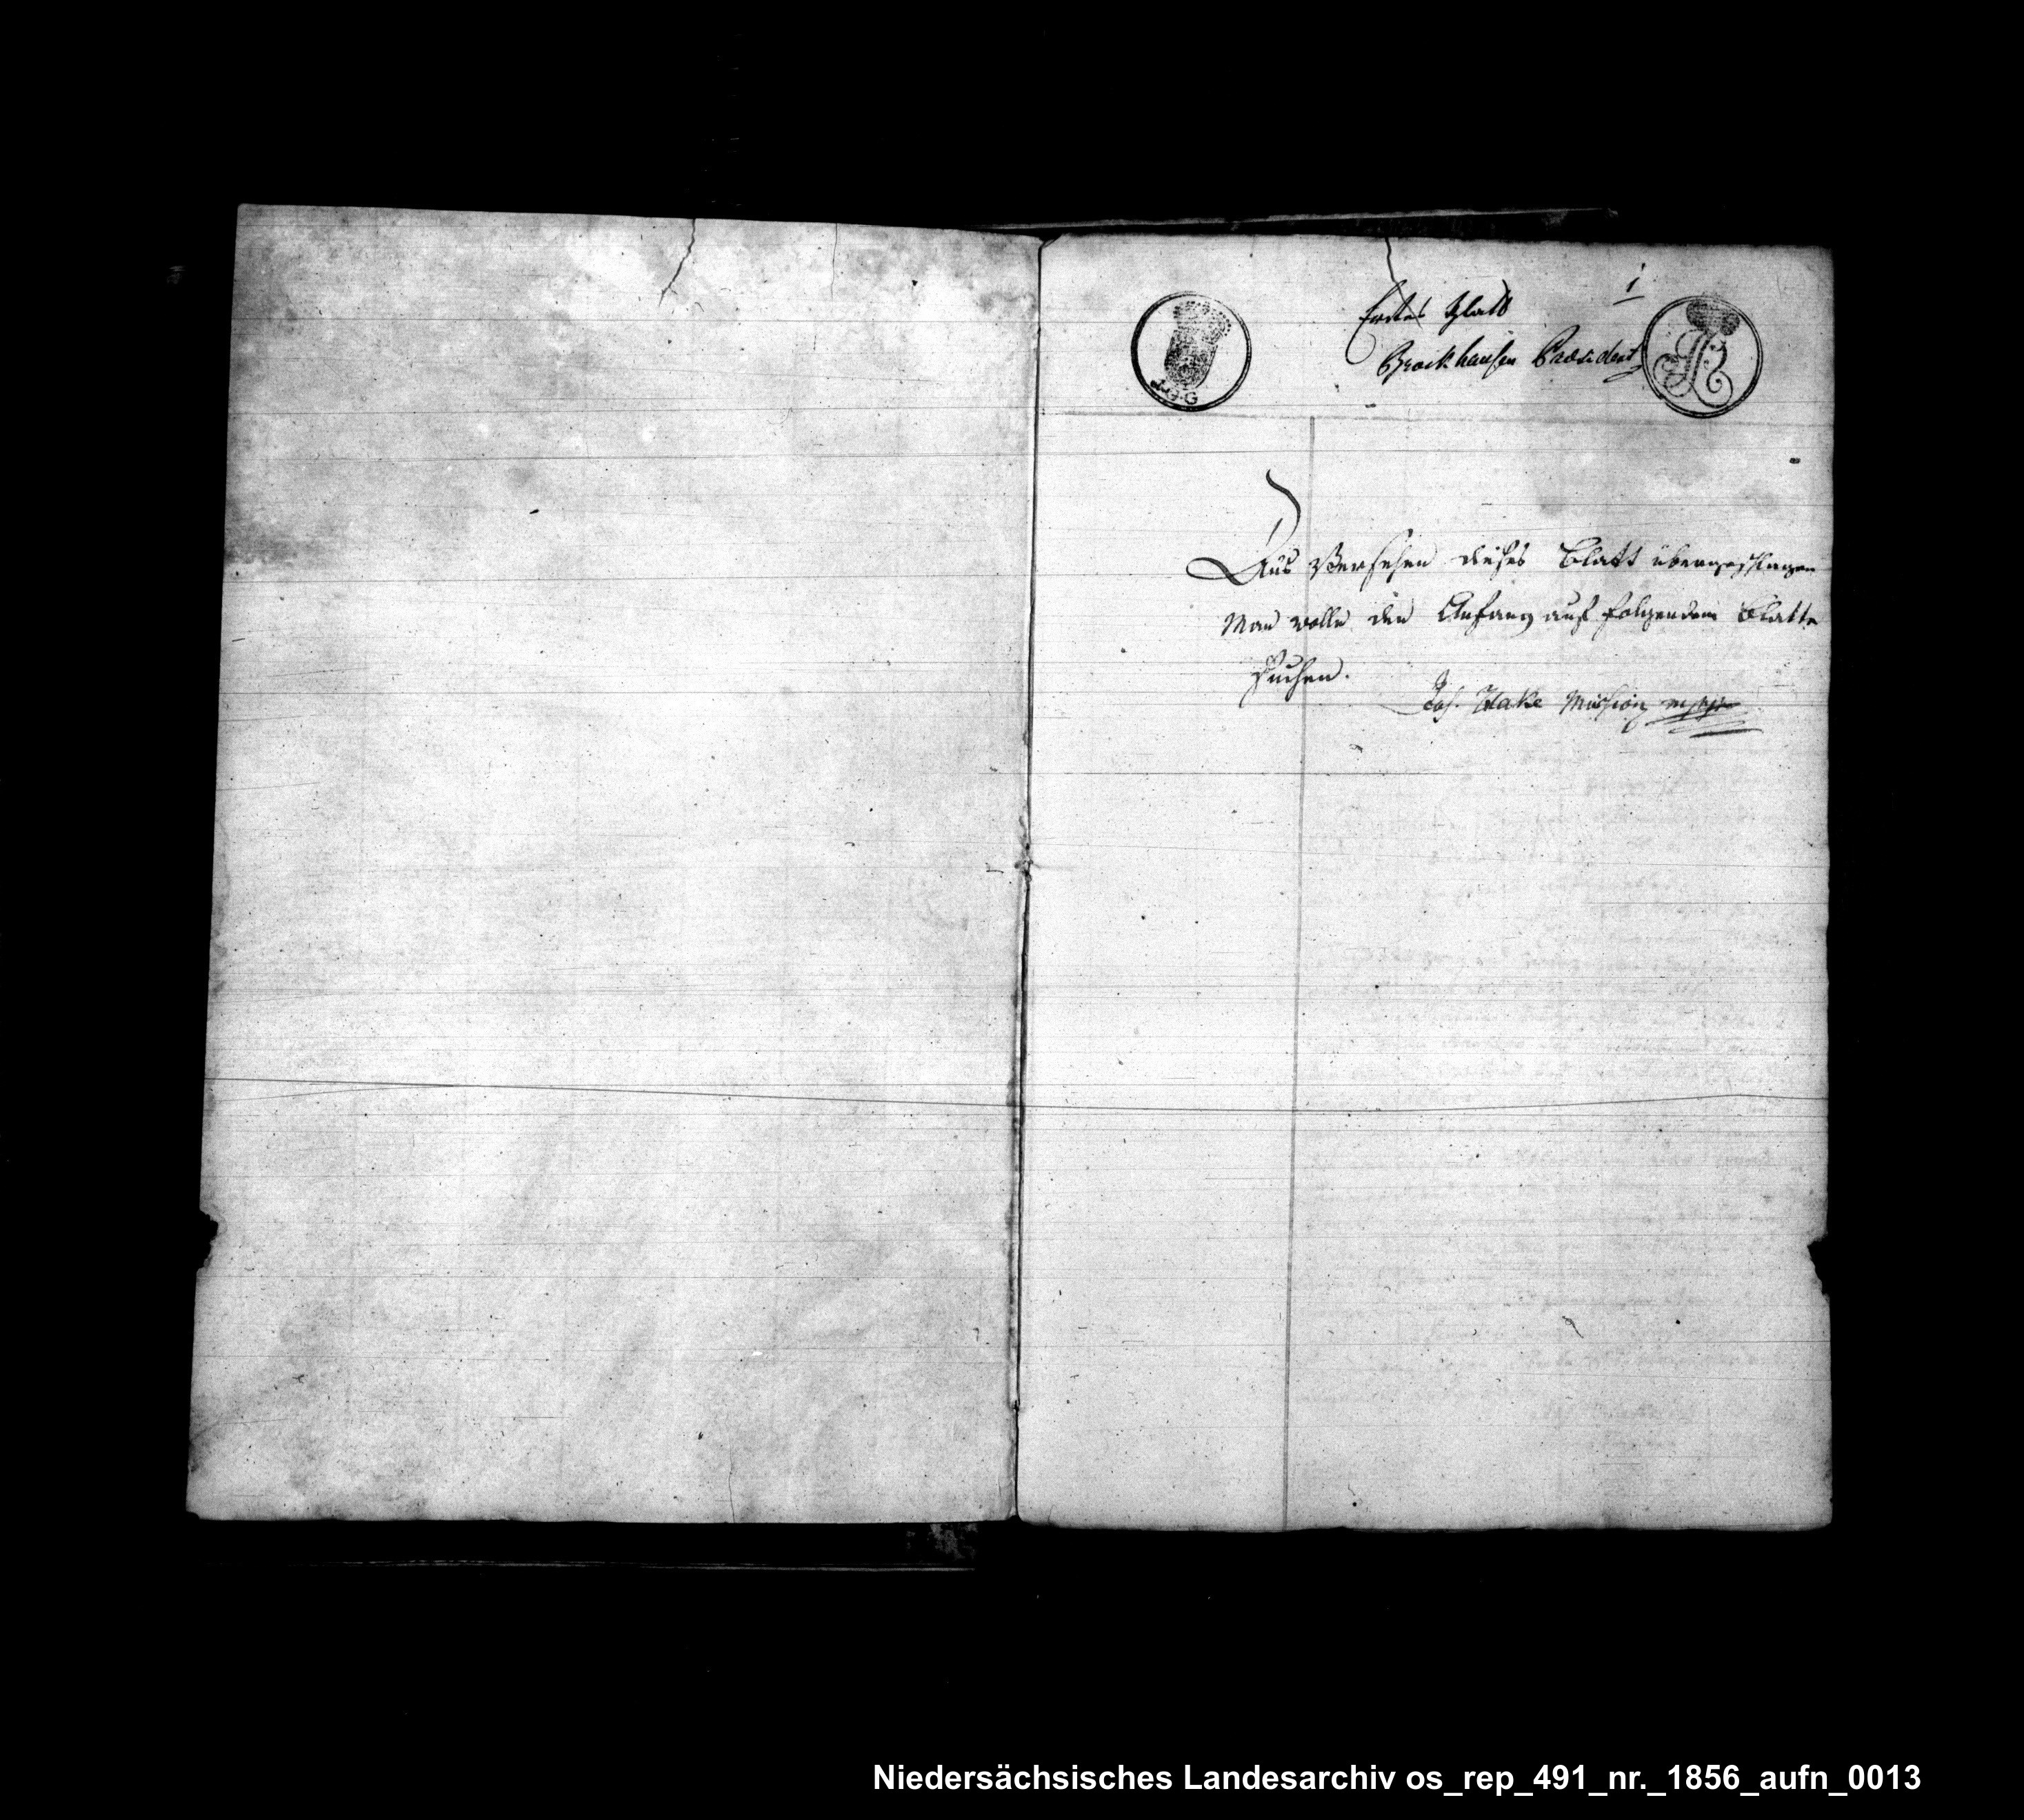 1
Erstes Blatt
Brockhausen Præsident
J. G. G
Aus Versehen dieses Blatt übergeschlagen
Man wolle den Anfang auf folgendem Blatte
suchen.
Joh. Hake
Niedersächsisches Landesarchiv os_rep_491_nr._1856_aufn_0013